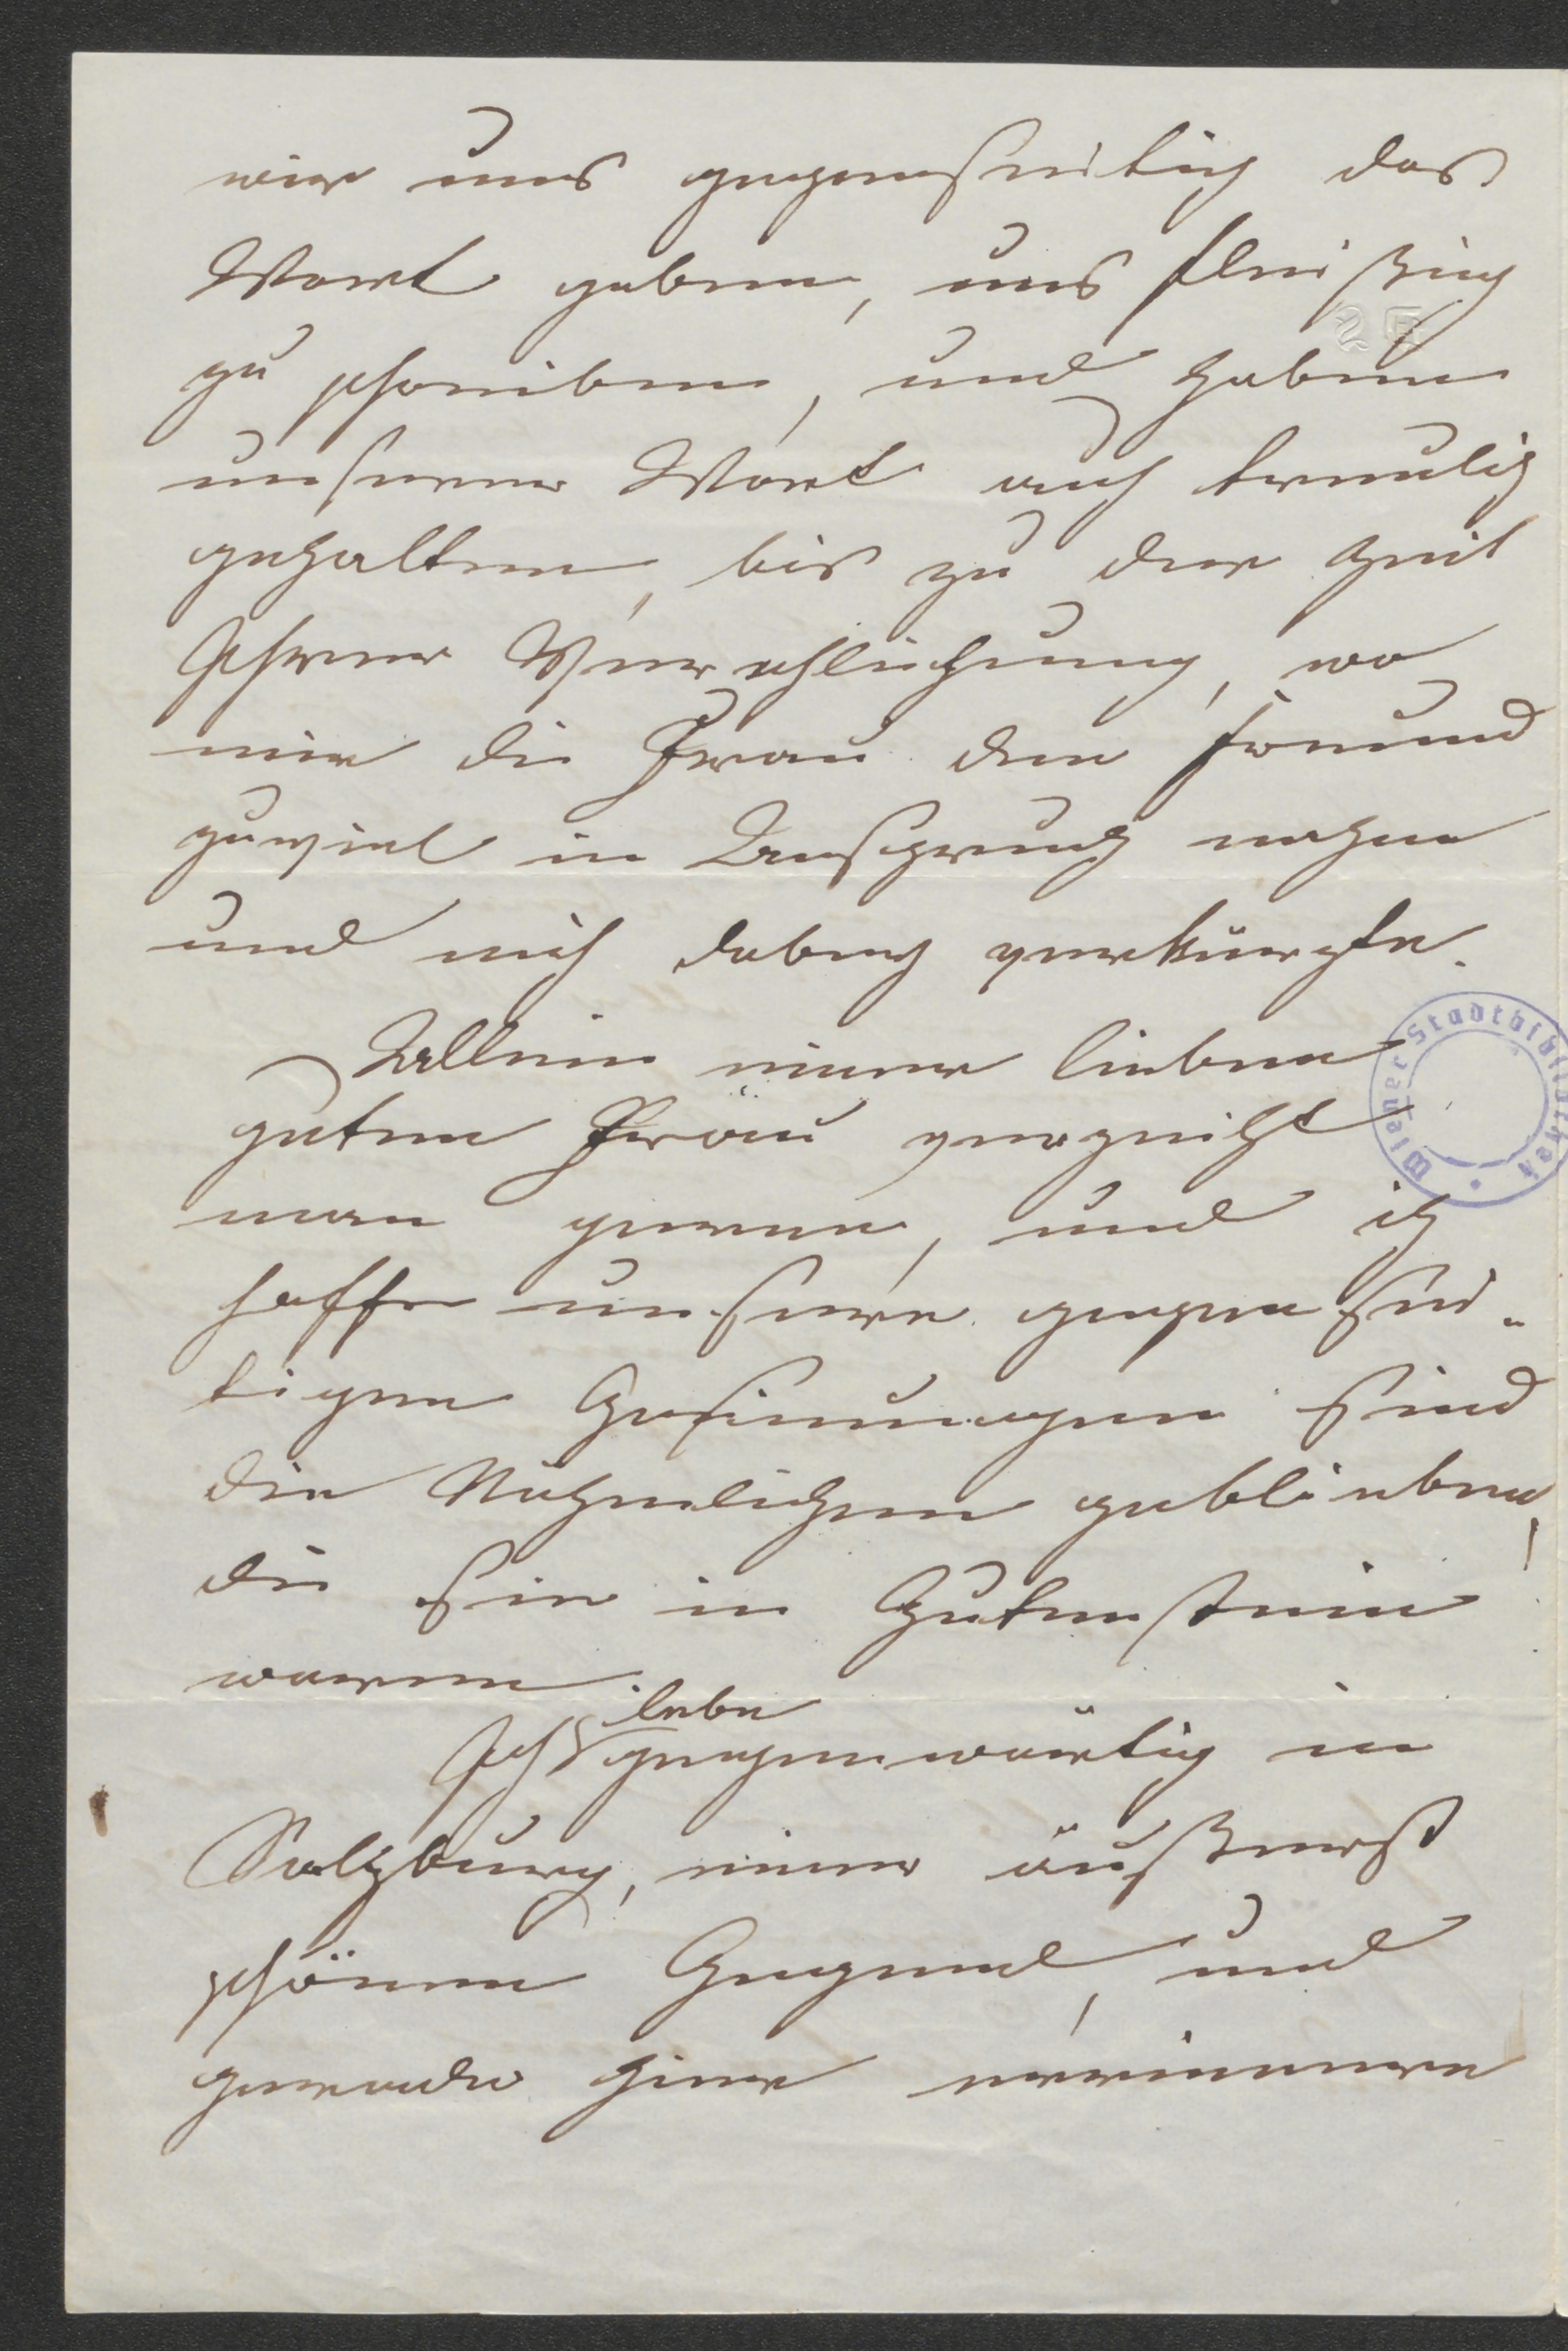 wir uns gegenseitig das
Wort geben, uns fleißig
zu schreiben, und haben
unserer Wort auch treulich
gehalten, bis zu der Zeit
Ihrer Verehlichung, wo
mir die Frau den Freund
zuviel in Anspruch nahm
und mich dabey verkürzte.
Allein einer lieben
guten Frau verzeiht
man gerne, und ich
hoffe unsere gegensei-
tigen Gesinnungen sind
die Nähmlichen geblieben,
die sie in Gutenstein
waren.
lebe
Ich gegenwärtig in
Salzburg, einer äußerst
schönen Gegend, und
gerade hier erinnere
Wiener Stadtbibliothek